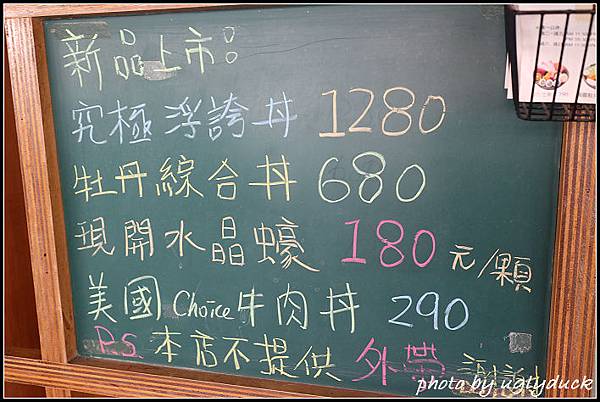 新品上市!
究極浮誇丼 1280
牡丹綜合丼 680
現開水晶蠔 180元/顆
美國Choice牛肉丼 290
P.S 本店不提供外帶 謝謝!
photo by uglyduck